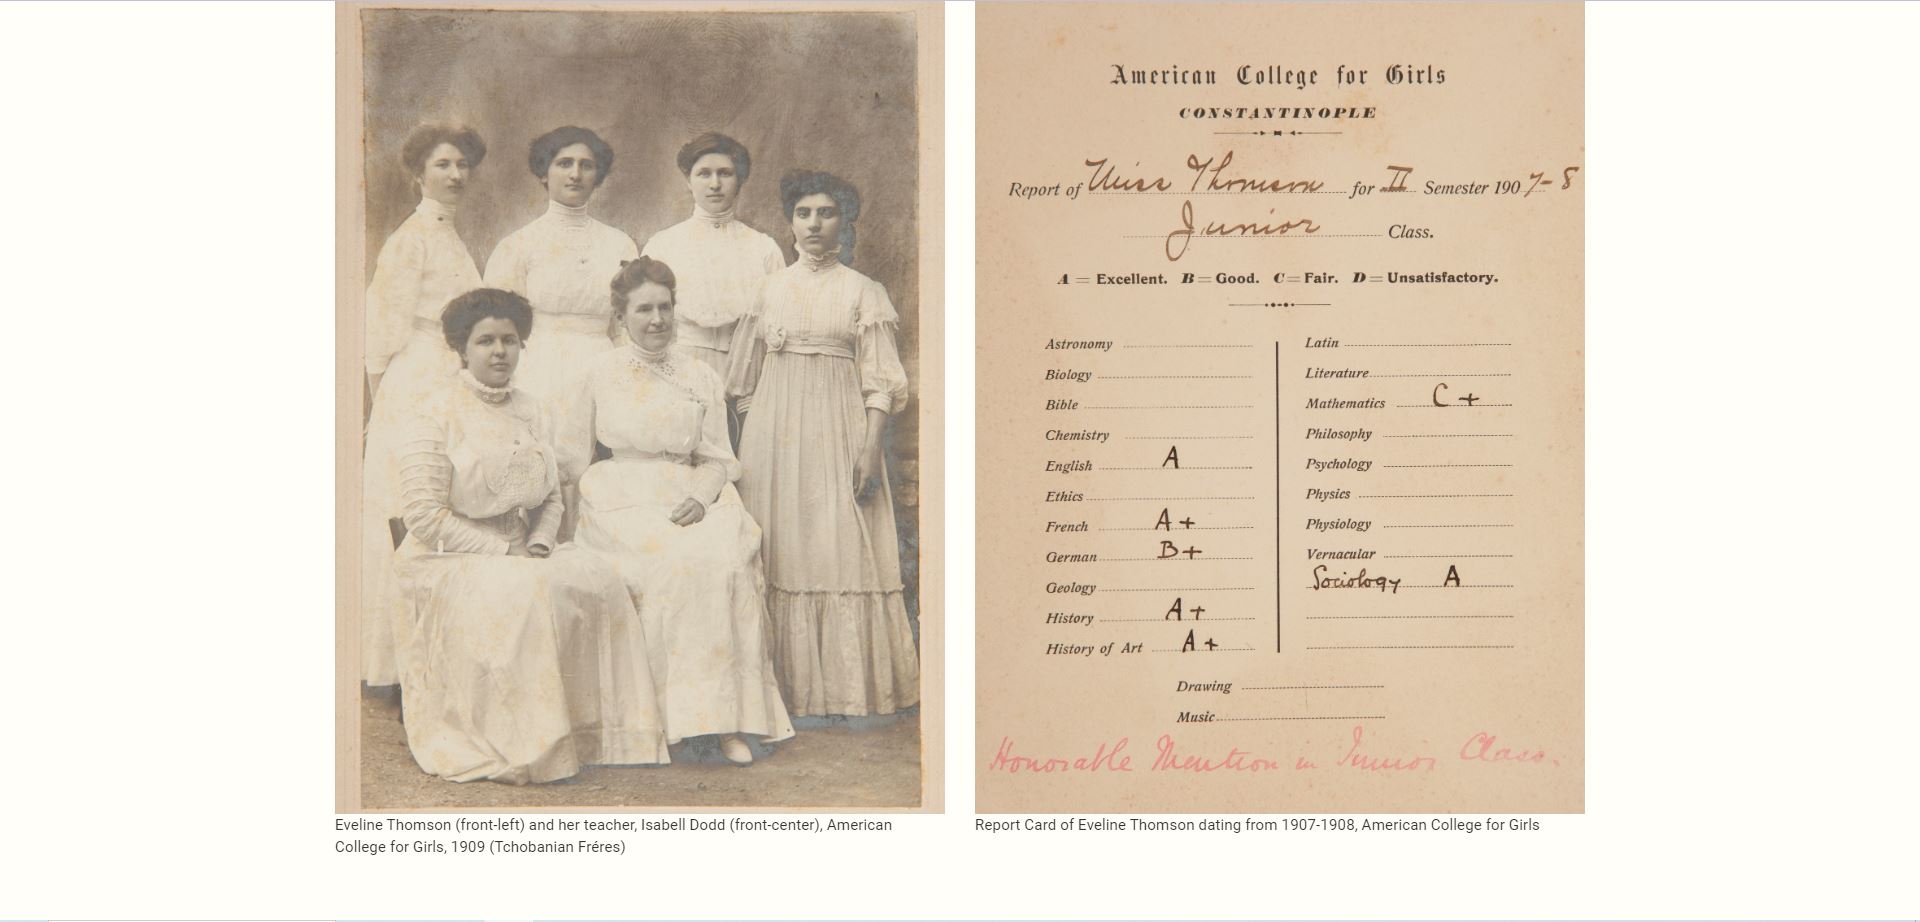 American College for Girls
CONSTANTINOPLE
Report of Miss Thomson for II Semester 1907-8
Junior Class.
A = Excellent. B = Good. C = Fair. D = Unsatisfactory.
Astronomy
Biology
Bible
Chemistry
English A
Ethics
French A+
German B+
Geology
History A+
History of Art A+
Latin
Literature
Mathematics C+
Philosophy
Psychology
Physics
Physiology
Vernacular
Sociology A
Drawing
Music
Honorable Mention in Junior Class.
Eveline Thomson (front-left) and her teacher, Isabell Dodd (front-center), American
College for Girls, 1909 (Tchobanian Fréres)
Report Card of Eveline Thomson dating from 1907-1908, American College for Girls